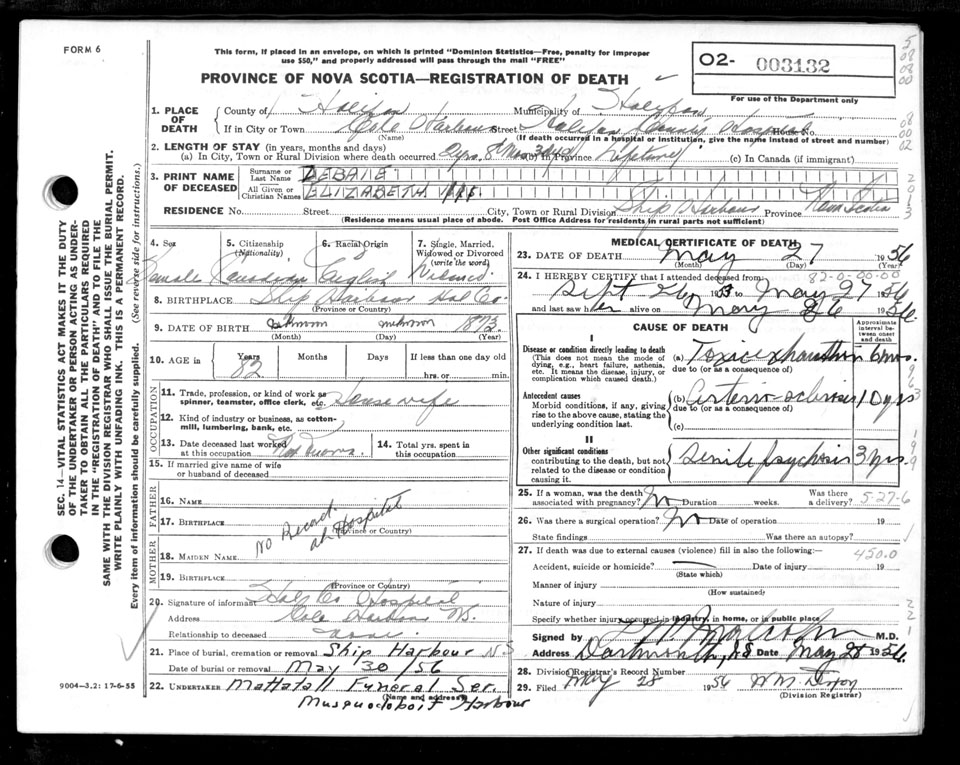 FORM 6
This form, if placed in an envelope, on which is printed "Dominion Statistics—Free, penalty for improper
use $50," and properly addressed will pass through the mail "FREE"
PROVINCE OF NOVA SCOTIA—REGISTRATION OF DEATH
02- 003132
For use of the Department only
1. PLACE OF DEATH
County of Halifax Municipality of Halifax
If in City or Town Cole Harbour Street Halifax County Hospital House No.
(Name) (If death occurred in a hospital or institution, give the name instead of street and number)
2. LENGTH OF STAY (in years, months and days)
(a) In City, Town or Rural Division where death occurred 2 yrs. 8 Mos. (b) In Province Lifetime (c) In Canada (if immigrant)
3. PRINT NAME OF DECEASED
Surname or Last Name DEBAIE
All Given or Christian Names ELIZABETH
RESIDENCE No. Street City, Town or Rural Division Ship Harbour Province Nova Scotia
(Residence means usual place of abode. Post Office Address for residents in rural parts not sufficient)
4. Sex
Female
5. Citizenship (Nationality)
Canadian
6. Racial Origin
English
7. Single, Married, Widowed or Divorced (write the word)
Widowed
8. BIRTHPLACE Ship Harbour Hal Co.
(Province or Country)
9. DATE OF BIRTH unknown unknown 1873
(Month) (Day) (Year)
10. AGE in Years Months Days If less than one day old
82 hrs. or min.
OCCUPATION
11. Trade, profession, or kind of work as spinner, teamster, office clerk, etc. Housewife
12. Kind of industry or business, as cotton-mill, lumbering, bank, etc.
13. Date deceased last worked at this occupation Not Known
14. Total yrs. spent in this occupation
15. If married give name of wife or husband of deceased
FATHER
16. NAME
17. BIRTHPLACE
(Province or Country)
No Record at Hospital
MOTHER
18. MAIDEN NAME
19. BIRTHPLACE
(Province or Country)
20. Signature of informant Halx Co Hospital
Address Cole Harbour NS.
Relationship to deceased none.
21. Place of burial, cremation or removal Ship Harbour NS
Date of burial or removal May 30/56
22. UNDERTAKER Mattatall Funeral Ser.
(Name and address)
Musquodoboit Harbour
9004—3.2: 17-6-55
MEDICAL CERTIFICATE OF DEATH
23. DATE OF DEATH May 27 1956
(Month) (Day)
24. I HEREBY CERTIFY that I attended deceased from
82-0-00-00
Sept 26 1953 to May 27 1956
and last saw her alive on May 26 1956.
CAUSE OF DEATH
Approximate interval between onset and death
I
Disease or condition directly leading to death
(This does not mean the mode of dying, e.g., heart failure, asthenia, etc. It means the disease, injury, or complication which caused death.)
(a) Toxic exhaustion 6 mos.
due to (or as a consequence of)
Antecedent causes
Morbid conditions, if any, giving rise to the above cause, stating the underlying condition last.
(b) Arterio-sclerosis 10 yrs
due to (or as a consequence of)
(c)
II
Other significant conditions
contributing to the death, but not related to the disease or condition causing it.
Senile psychosis 3 yrs.
25. If a woman, was the death associated with pregnancy? No Duration weeks. Was there a delivery?
5-27-6
26. Was there a surgical operation? No Date of operation 19
State findings Was there an autopsy?
27. If death was due to external causes (violence) fill in also the following:—
450.0
Accident, suicide or homicide? Date of injury 19
(State which)
Manner of injury
(How sustained)
Nature of injury
Specify whether injury occurred in industry, in home, or in public place
Signed by Malcolm M.D.
Address Dartmouth, N.S Date May 28 1956.
28. Division Registrar's Record Number
29. Filed May 28 1956
(Division Registrar)
SEC. 14—VITAL STATISTICS ACT MAKES IT THE DUTY
OF THE UNDERTAKER OR PERSON ACTING AS UNDER-
TAKER TO OBTAIN ALL THE PARTICULARS REQUIRED
IN THE "REGISTRATION OF DEATH" AND TO FILE THE
SAME WITH THE DIVISION REGISTRAR WHO SHALL ISSUE THE BURIAL PERMIT.
WRITE PLAINLY WITH UNFADING INK. THIS IS A PERMANENT RECORD.
Every item of information should be carefully supplied. (See reverse side for instructions.)